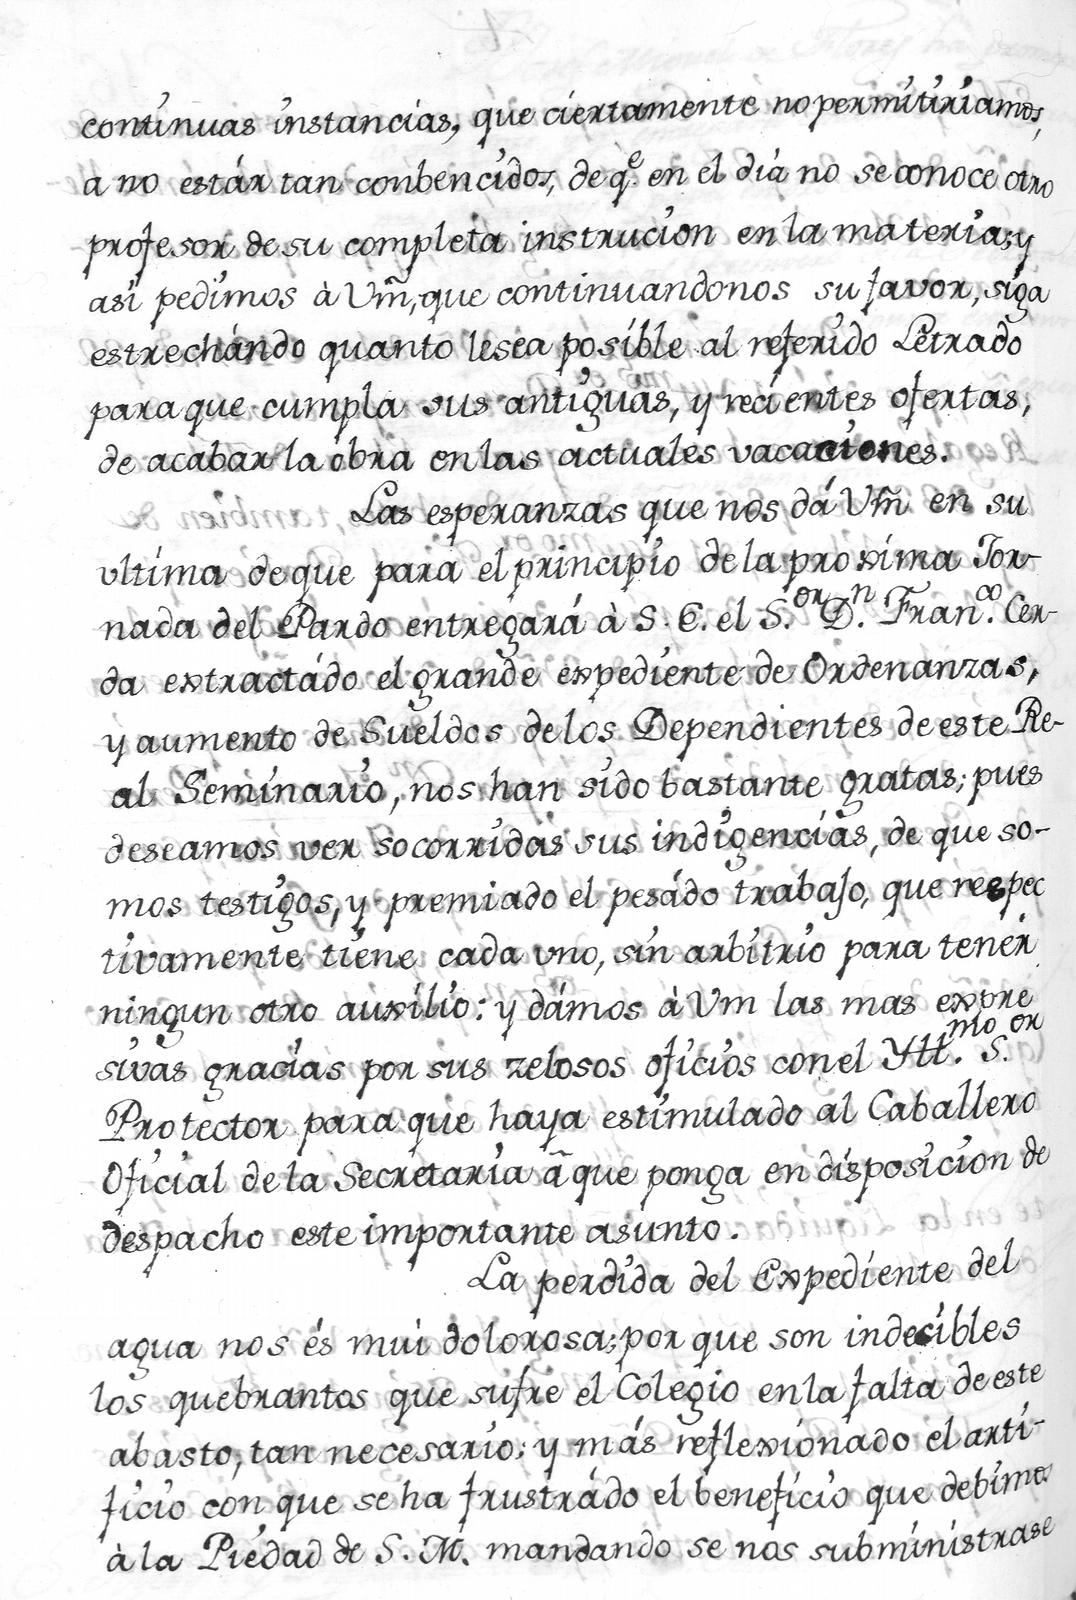 continuas instancias, que ciertamente no permitiriamos,
a no estár tan conbencidos, de q.e en el dia no se conoce otro
profesor de su completa instrucion en la materia; y
asi pedimos à Vm̃, que continuandonos su favor, siga
estrechándo quanto le sea posible al referido Letrado
para que cumpla sus antiguas, y recientes ofertas,
de acabar la obra en las actuales vacaciones.
Las esperanzas que nos dá Vm̃ en su
vltima de que para el principio de la proxima Jor-
nada del Pardo entregará à S. E. el S.or D.n Fran.co Cer-
da extractádo el grande expediente de Ordenanzas,
y aumento de Sueldos de los Dependientes de este Re-
al Seminario, nos han sido bastante gratas; pues
deseamos ver socorridas sus indigencias, de que so-
mos testigos, y premiado el pesádo trabajo, que respec
tivamente tiene cada vno, sin arbitrio para tener
ningun otro auxilio: y dámos à Vm las mas expre
sivas gracias por sus zelosos oficios con el Yll.mo S.or
Protector para que haya estimulado al Caballero
Oficial de la Secretaria ã que ponga en disposicion de
despacho este importante asunto.
La perdida del Expediente del
agua nos és mui dolorosa; por que son indecibles
los quebrantos que sufre el Colegio en la falta de este
abasto, tan necesario; y más reflexionado el arti-
ficio con que se ha frustrádo el beneficio que debimos
à la Piedad de S. M. mandando se nos subministrase